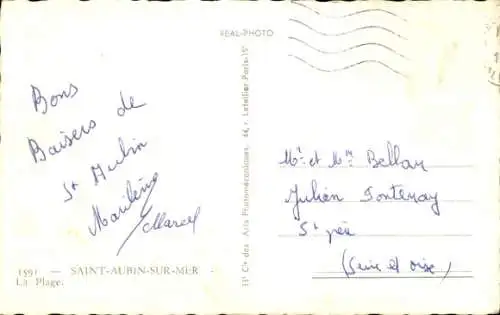 REAL-PHOTO
Bons
Baisers de
St Aubin
Marcel
1591 — SAINT-AUBIN-SUR-MER -
La Plage.
Cie des Arts Photomécaniques, 44, r. Letellier Paris-15e
Mr et Mme Bellar
Julien Fontenay
St
(Seine et oise)